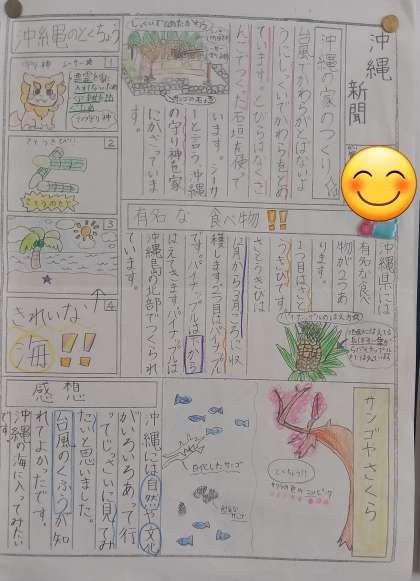 沖縄
新聞
沖縄の家のつくり
台風でかわらがとばないよ
うにしっくいでかわらをとめ
ています。とびらはなくさ
んごでつくった石垣を使って
います。シーサ
ーと言う、沖縄
の守り神を家
にかざっていま
す。
しっくいでとめたかわら
サンゴの石垣
沖縄のとくちょう
1
守り神
シーサー
2
さとうきび
3
4
きれいな
海!!
有名な食べ物!!
沖縄県には
有名な食べ
物が2つあ
ります。
1つ目はさと
うきびです。
さとうきびは
12月から3月ごろに収
穫します。2つ目はパイナップル
です。パイナップルは下から
はえてきます。パイナップルは
沖縄島の北部でつくられ
ています。
パイナップルのはえ方
サンゴやさくら
白化したサンゴ
感想
沖縄には自然や文化
がいろいろあって行
ってじっさいに見てみ
たいと思いました。
台風のくふうが知
れてよかったです。
沖縄の海に入ってみたい
です。